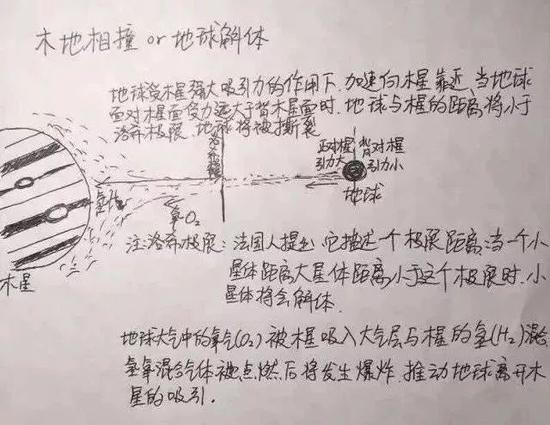 木地相撞 or 地球解体
地球受木星强大吸引力的作用下,加速向木星靠近,当地球
面对木星面受力远大于背木星面时,地球与木星的距离将小于
洛希极限,地球将被撕裂
洛希极限
正对木星
引力大
背对木星
引力小
地球
氢H₂
氧O₂
木星
注:洛希极限:法国人提出,它描述一个极限距离:当一个小
星体距离大星体距离小于这个极限时,小
星体将会解体.
地球大气中的氧气(O₂)被木星吸入大气层与木星的氢(H₂)混
氢氧混合气体被点燃后将发生爆炸,推动地球离开木
星的吸引.